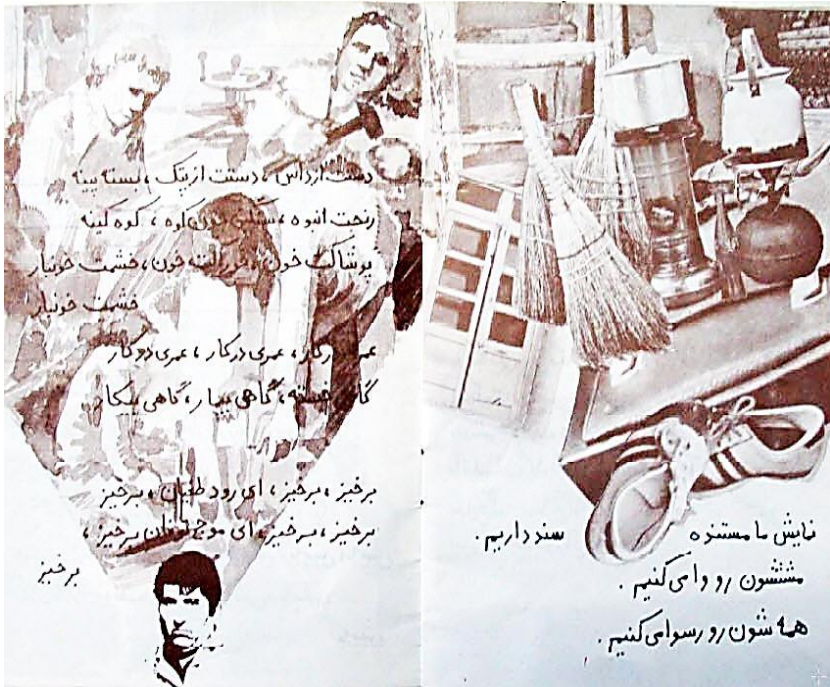 نمایش ما مستنده سند داریم.
مشتشون رو وا می کنیم.
همه شون رو رسوا می کنیم.
دست از داس، دست از پتک، بسته پینه
رنجت انبوه، سنگین چون کوه، کوه کینه
پوشاکت خون، خون، خشمت خونبار
خشمت خونبار
عمری در کار، عمری در کار، عمری در کار
گاهی خسته، گاهی بیمار، گاهی بیکار
برخیز، برخیز، ای رود طغیان، برخیز
برخیز، برخیز، ای موج توفان برخیز،
برخیز